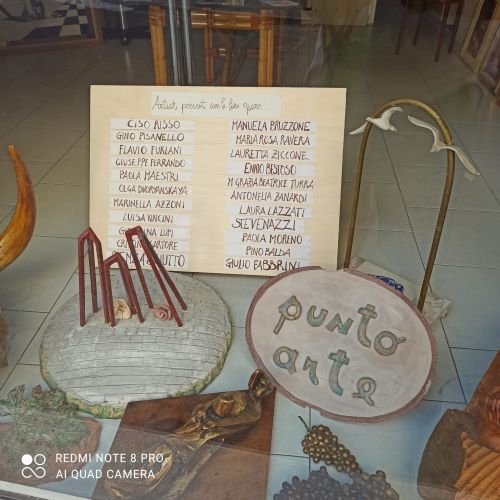 Artisti presenti con le loro opere
CISO RISSO
GINO PISANELLO
FLAVIO FURLANI
GIUSEPPE FERRANDO
PAOLA MAESTRI
OLGA DVORYANSKAYA
MARINELLA AZZONI
LUISA VINCINI
LUPI
SARTORE
MANUELA BRUZZONE
MARIA ROSA RAVERA
LAURETTA ZICCONE
ENNIO BESTOSO
M GRAZIA BEATRICE TURRA
ANTONELLA ZANARDI
LAURA LAZZATI
STEVENAZZI
PAOLA MORENO
PINO BALDA
GIULIO FABBRINI
punto
arte
REDMI NOTE 8 PRO
AI QUAD CAMERA